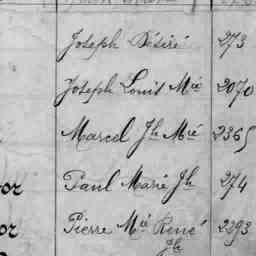 Joseph Désiré 273
Joseph Louis Mie 2070
Marcel Jh Mie 2365
or Paul Marie Jh 274
or Pierre Mie René 2293
Jh